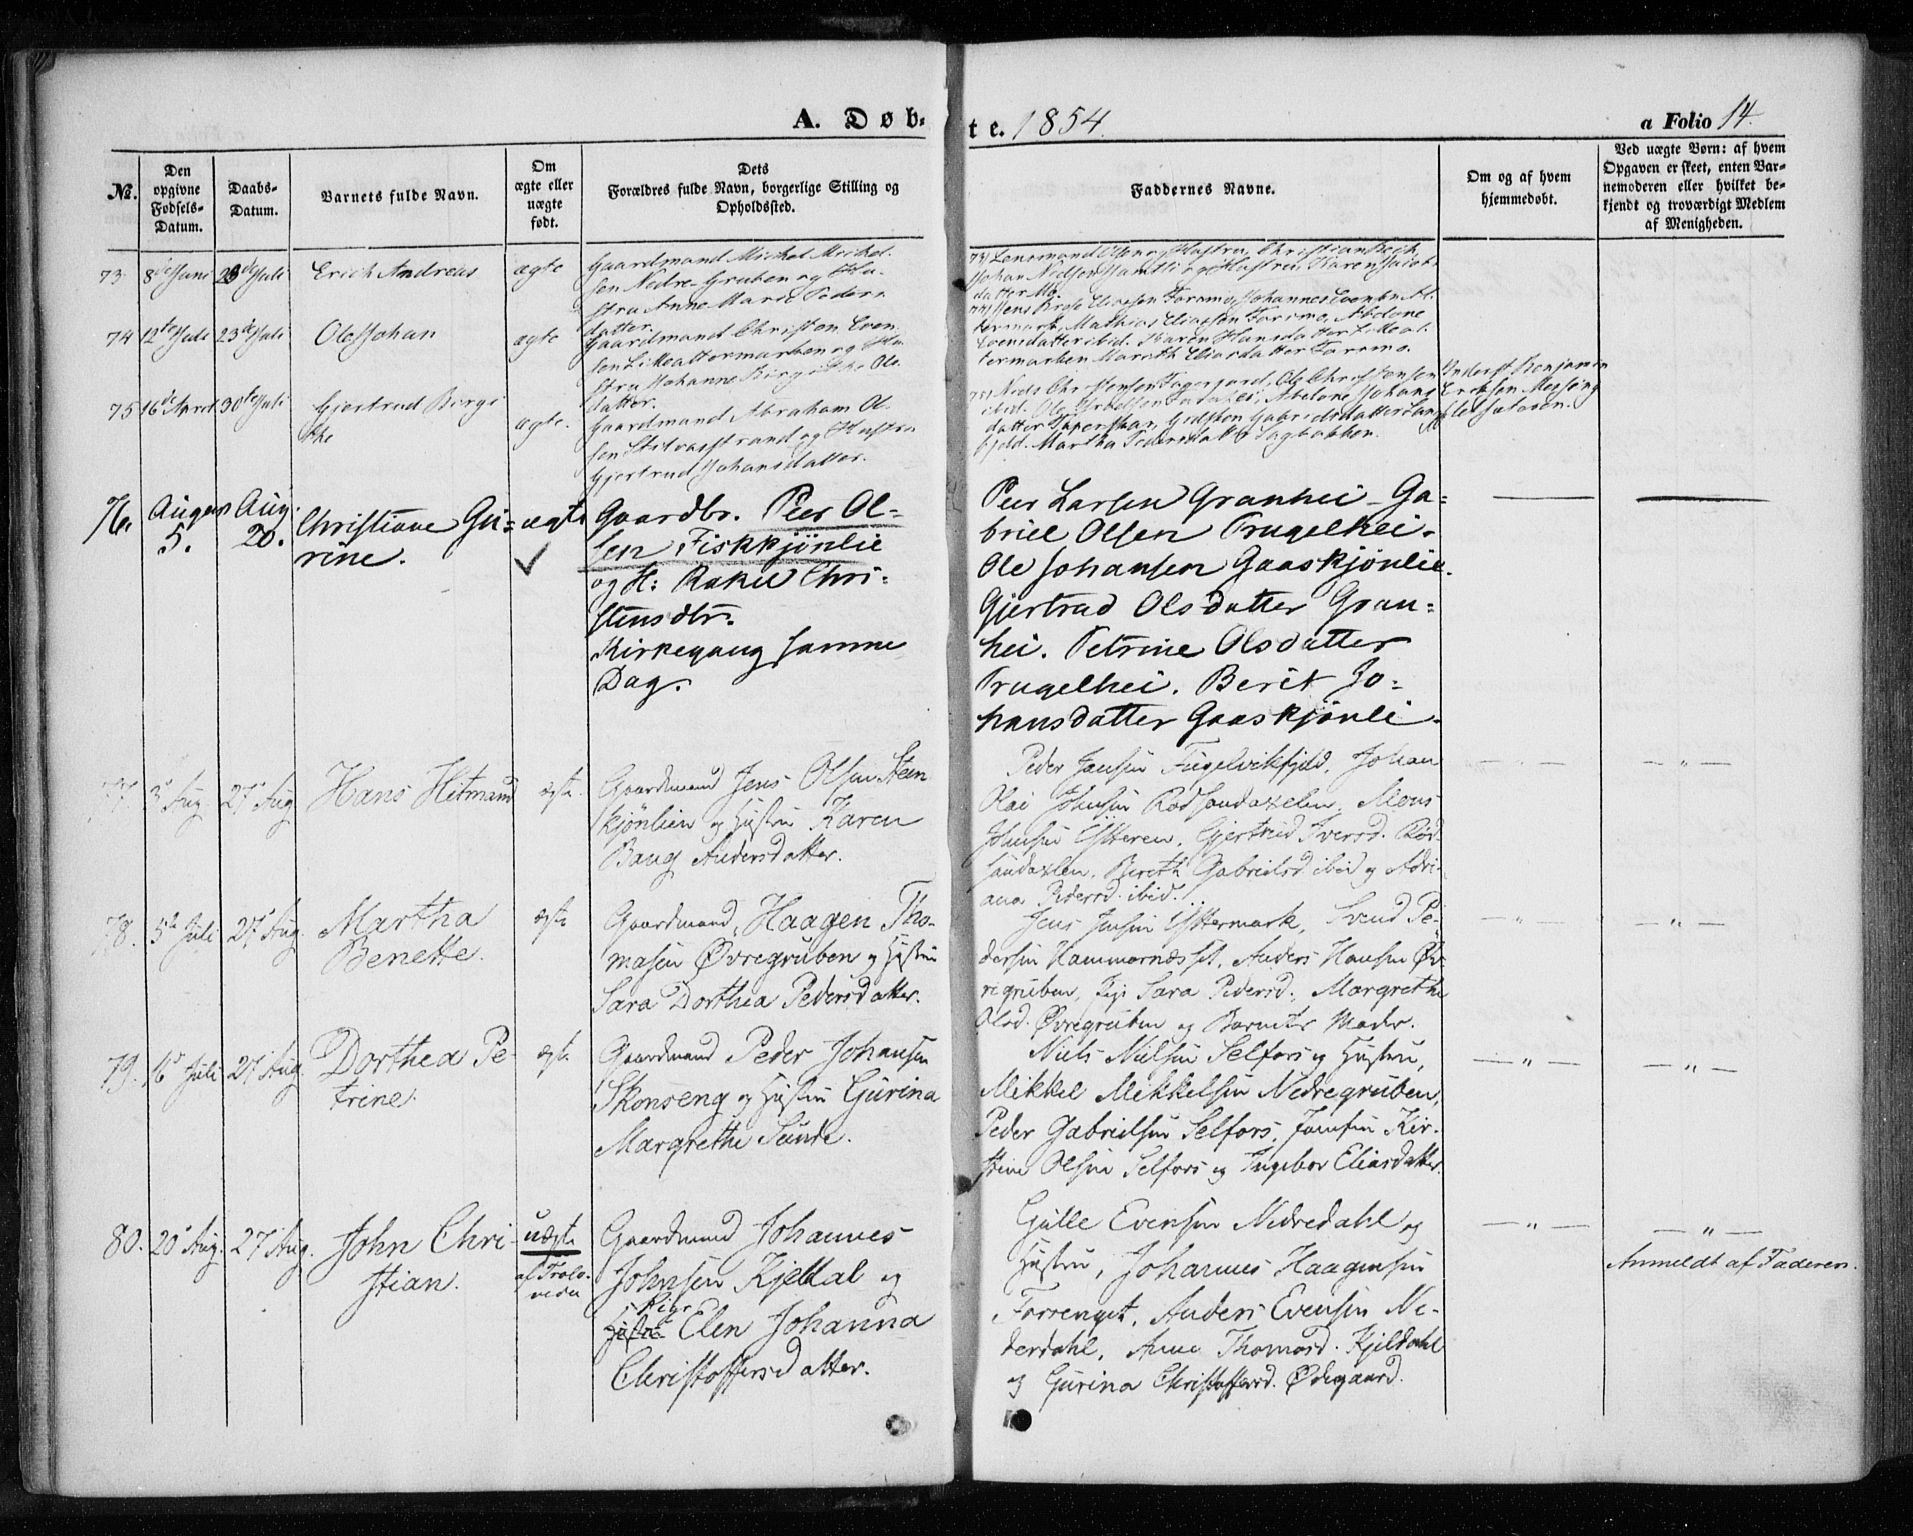 A. Døb-
te. 1854.
a Folio 14.
№.
Den opgivne Fødsels-Datum.
Daabs-Datum.
Barnets fulde Navn.
Om ægte eller uægte født.
Dets Forældres fulde Navn, borgerlige Stilling og Opholdssted.
Faddernes Navne.
Om og af hvem hjemmedøbt.
Ved uægte Børn: af hvem Opgaven er skeet, enten Barnemoderen eller hvilket bekjendt og troværdigt Medlem af Menigheden.
73 8de Juni 23de Juli Erich Andreas ægte
Gaardmand Michel Michel-
sen Nedre-Gruben og Hu-
stru Anne Marie Peders
datter.
73) Lensmand Hustru, Christian
Johan Nielsen og Hustru, Karen Jacobs
datter Mo.
74 12te Juli 23de Juli Ole Johan ægte
Gaardmand Christen Even
sen Lillealtermarken og Hu
stru Johanne Birgithe Ols
datter.
74) Jens Eliassen Forsmo, Johannes Evensen Al-
termark, Mathias Eliassen Forsmo, Abelone
Evensdatter ibid. Karen Hansdatter Lilleal-
termarken Marith Eliasdatter Forsmo.
75 16de April 30te Juli Gjertrud Birgi
the
ægte.
Gaardmand Abraham Ol-
sen Stilvasstrand og Hustru
Gjertrud Johansdatter.
75) Niels Christensen Ole Christensen
ibid. Ole Abelone Johans
datter Gabrielsdatter Lang
fjeld. Martha Pedersdatter Sagbakken.
Underoff. Benjamin
Eriksen Messing
76. August 5. Aug. 20. Christiane Gu=
rine. ægte
Gaardbr. Peer Ol=
sen Fiskkjönlie
og H: Rakel Chri=
stensdtr.
Kirkegang samme
Dag.
Peer Larsen Granhei - Ga=
briel Olsen Trugelhei.
Ole Johansen Gaaskjönlie.
Gjertrud Olsdatter Gran=
hei. Petrine Olsdatter
Trugelhei. Berit Jo=
hansdatter Gaaskjönli.
77. 3d Aug 27 Aug Hans Hetmand ægte
Gaardmand Jens Olsen Steen
kjönlien og Hustru Karen
Baug Andersdatter.
Peder Jansen Fugelvikfjeld, Johan
Olai Johnsen Rødsandaxelen, Mons
Johnsen Ytteren, Gjertrud Iversd. Rød
sandaxlen, Berith Gabrielsd ibid og Adri
ana Pedersd. ibid.
— „ —
— „ —
78. 5te Juli 27 Aug. Martha
Benette. ægte
Gaardmand, Haagen Tho-
masen Øvregruben og Hustru
Sara Dorthea Pedersdatter.
Jens Jensen Yttermark, Svend Pe-
dersen Hammernæsset, Anders Hansen Øv
regruben, Pige Sara Pedersd., Margrethe
Olsd. Øvregruben og Barnets Moder.
— „ —
— „ —
79. 16d Juli 27 Aug Dorthea Pe-
trine. ægte
Gaardmand Peder Johansen
Skonseng og Hustru Gurina
Margrethe Sunde.
Niels Nielsen Selfors og Hustru,
Mikkel Mikkelsen Nedregruben,
Peder Gabrielsen Selfors, Jomfru Kir-
stine Olsen Selfors og Ingebor Eliasdatter.
— „ —
— „ —
80. 20 Aug. 27 Aug. John Chri-
stian. uægte
af Trolo-
vede
Gaardmand Johannes
Johnsen Kjeldal og
Pige
Hustru Elen Johanna
Christoffersdatter.
Gulle Evensen Nedredahl og
Hustru, Johannes Haagensen
Forrenget, Anders Evensen Ne-
derdahl, Anne Thomasd. Kjeldahl
og Gurina Christoffersd. Ødegaard.
— „ —
— „ —
Anmeldt af Faderen.